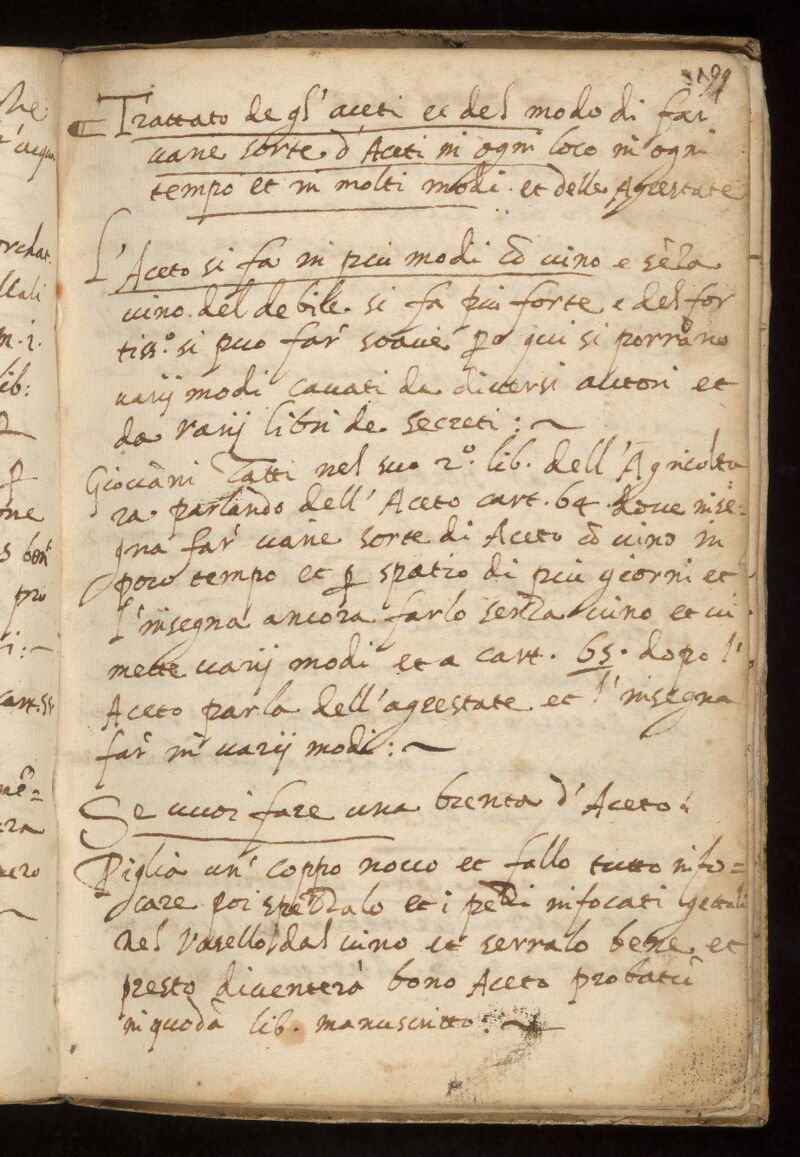 Trattato de gl' aceti et del modo di far
varie sorte d' Aceti in ogni loco in ogni
tempo et in molti modi. et delle Agrestate
L' Aceto si fa in piu modi cō uino e sēza
uino. del debile. si fa piu forte e del for
tiss.º si puo far soave però qui si porrāno
varij modi cavati da diversi autori et
da varij libri de secreti:~
Giovāni Tatti nel suo 2.º lib. dell' Agricoltu
ra parlādo dell' Aceto cart. 64 dove inse=
gna far varie sorte di Aceto cō vino in
poco tempo et p spatio di piu giorni et
l'insegna ancora farlo senza uino et ui
mette varij modi et a cart. 65. dopo l'
Aceto parla dell'agrestate et l'insegna
far in varij modi:~
Se vuoi fare una brenta d' Aceto:
Piglia un' coppo novo et fallo tutto info=
care poi spezzalo et i pezzi infocati gettali
nel vasello dal vino et serralo bene et
presto diventerà bono Aceto probatū
in quodā lib. manuscritto:~
arcq
orchat.
llali
m. i.
lib:
p
one
s bon
pro
i:~
cart. 55
mē=
era
vero